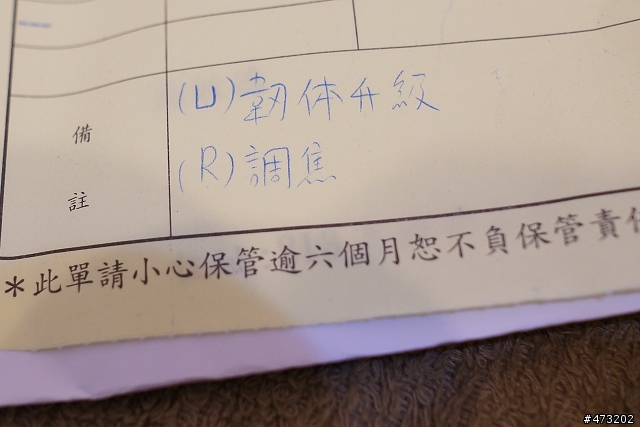 備註
(U)韌体升級
(R)調焦
*此單請小心保管逾六個月恕不負保管責任
#473202